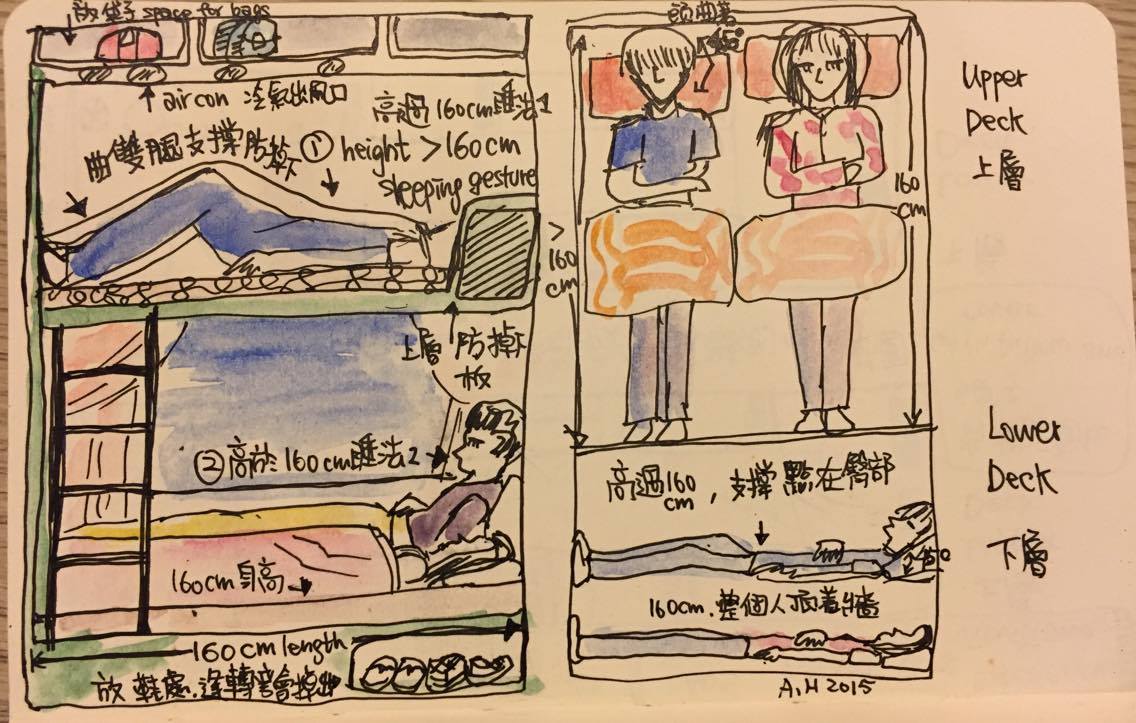 放袋子 space for bags
aircon 冷氣出風口
高過160cm睡法1
① height > 160cm
sleeping gesture
曲雙腿支撐防掉下
上層防掉下
板
②高於160cm睡法2
160cm身高
160cm length
放鞋處.逢轉彎會掉出
頭曲著
45°
>
160
cm
160
cm
Upper
Deck
上層
高過160
cm，支撐點在臀部
45°
160cm.整個人頂着牆
Lower
Deck
下層
A.M 2015